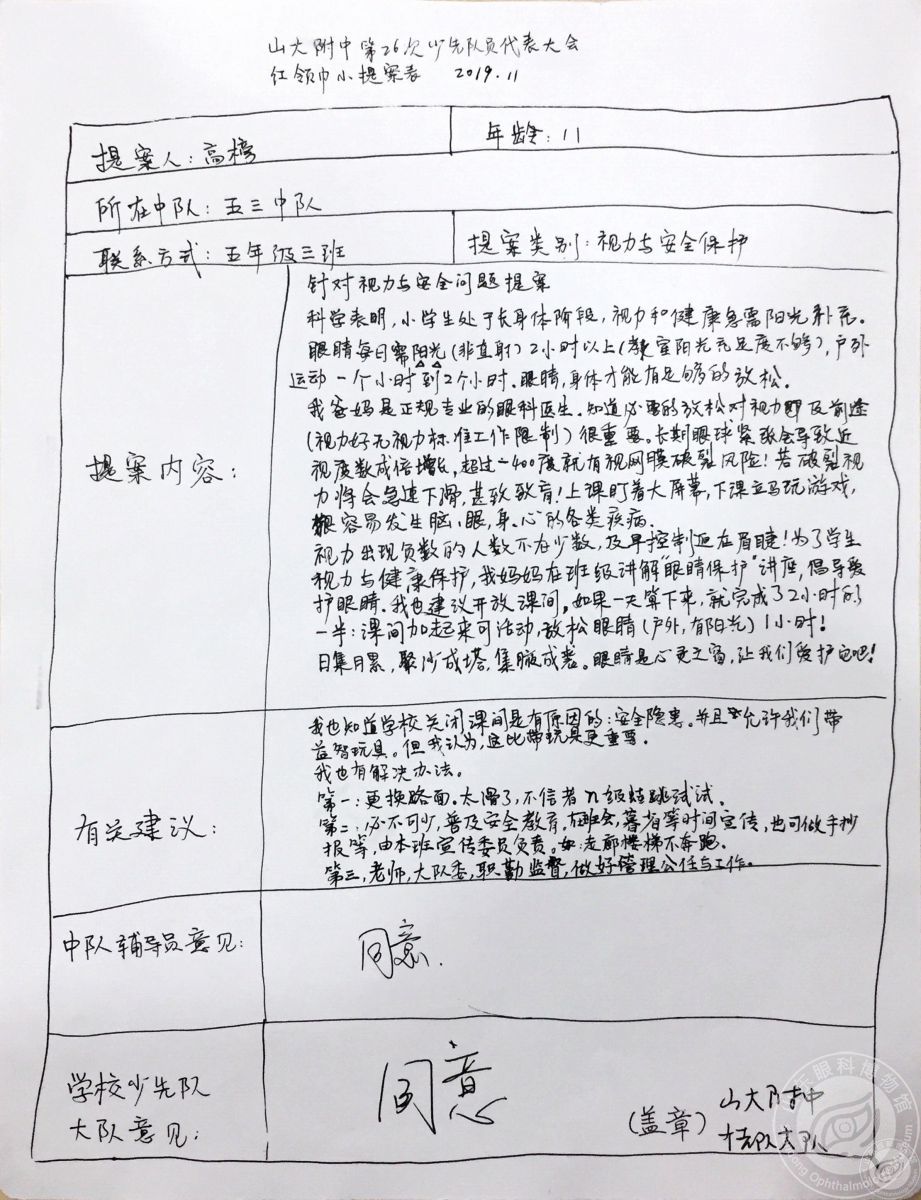 山大附中第26次少先队员代表大会
红领巾小提案表 2019.11
提案人：高榕
年龄：11
所在中队：五三中队
联系方式：五年级三班
提案类别：视力与安全保护
提案内容：
针对视力与安全问题提案
科学表明，小学生处于长身体阶段，视力和健康急需阳光补充。
眼睛每日需阳光（非直射）2小时以上（教室阳光充足度不够），户外
运动一个小时到2个小时。眼睛，身体才能有足够的放松。
我爸妈是正规专业的眼科医生。知道必要的放松对视力即及前途
（视力好无视力标准工作限制）很重要。长期眼球紧张会导致近
视度数成倍增长，超过-400度就有视网膜破裂风险！若破裂视
力将会急速下滑，甚致致盲！上课盯着大屏幕，下课立马玩游戏，
很容易发生脑、眼、身、心的各类疾病。
视力出现负数的人数不在少数，及早控制迫在眉睫！为了学生
视力与健康保护，我妈妈在班级讲解“眼睛保护”讲座，倡导爱
护眼睛。我也建议开放课间。如果一天算下来，就完成了2小时的
一半：课间加起来可活动，放松眼睛（户外，有阳光）1小时！
日集月累，聚沙成塔，集腋成裘。眼睛是心灵之窗，让我们爱护它吧！
有关建议：
我也知道学校关闭课间是有原因的：安全隐患。并且允许我们带
益智玩具。但我认为，这比带玩具更重要。
我也有解决办法。
第一：更换路面。太滑了，不信者n级蛙跳试试。
第二：必不可少，普及安全教育。在班会，暮省等时间宣传，也可做手抄
报等，由本班宣传委员负责。如：走廊楼梯不奔跑。
第三，老师，大队委，职勤监督，做好管理公任与工作。
中队辅导员意见：
同意.
学校少先队
大队意见：
同意
（盖章）
山大附中
少先队大队
眼科博物馆
Ophthalmology Museum